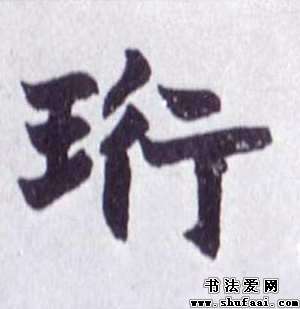 珩
书法爱网
www.shufaai.com